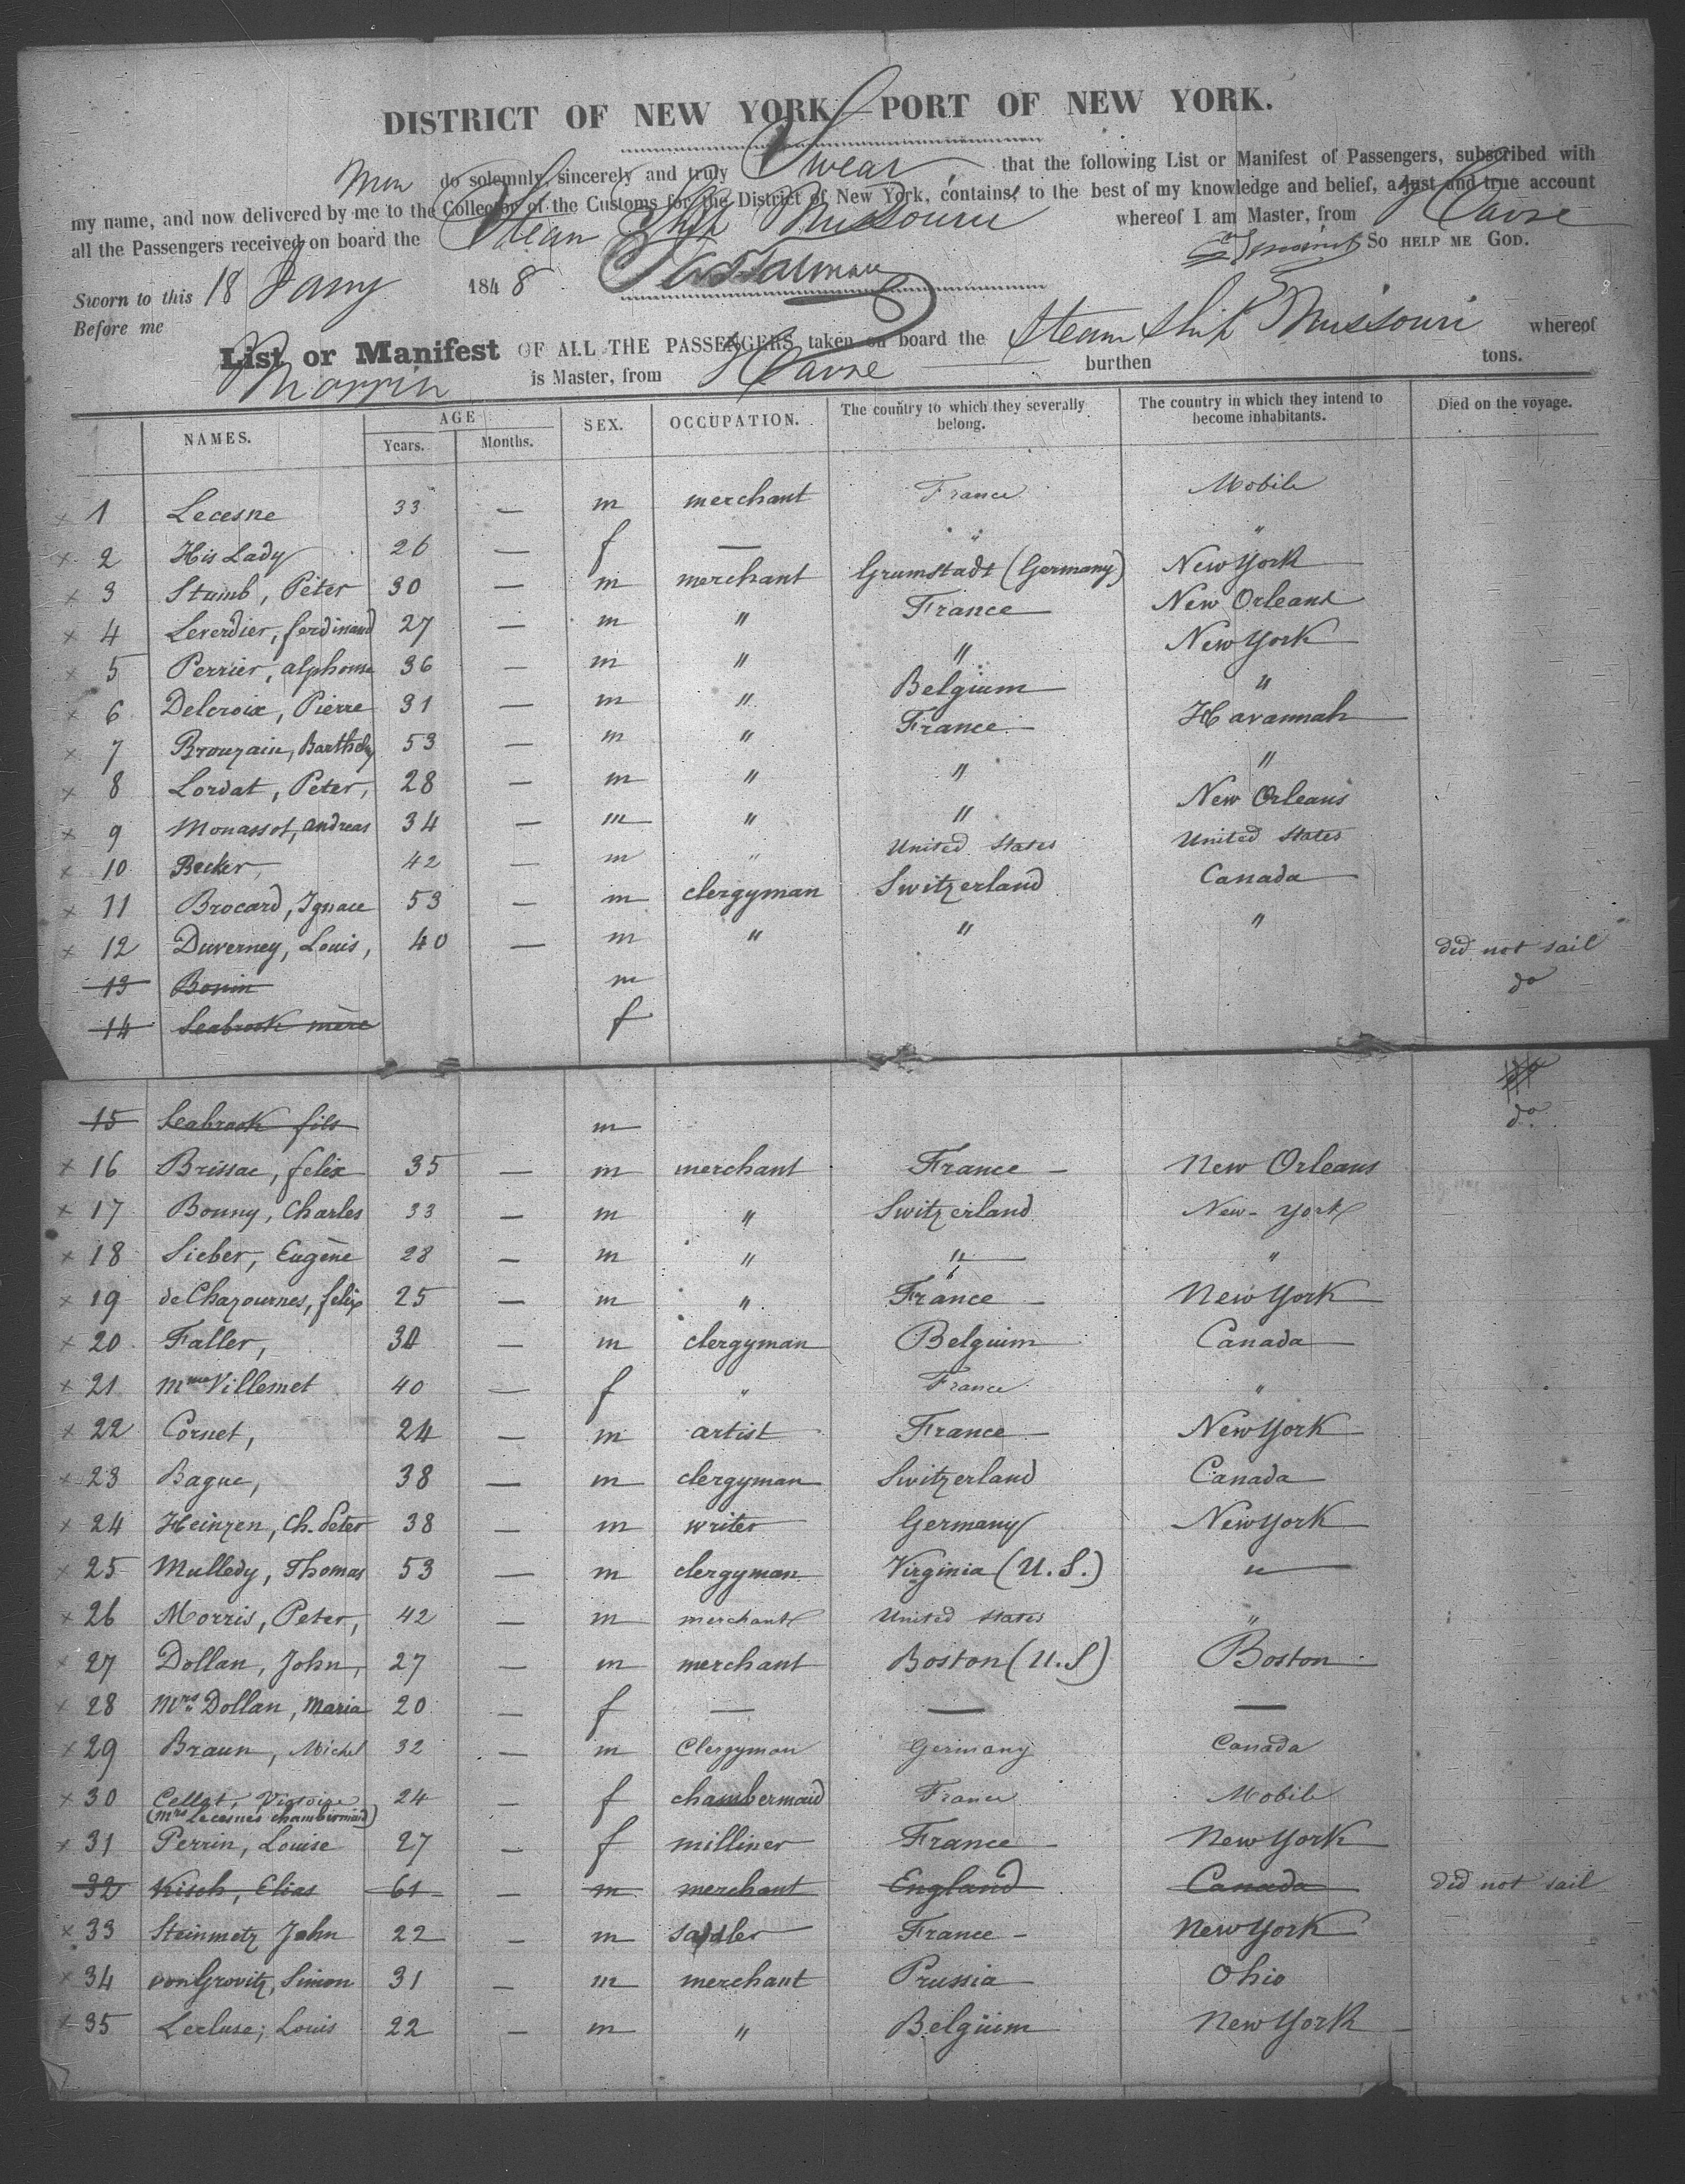 DISTRICT OF NEW YORK—PORT OF NEW YORK.
do solemnly, sincerely and truly Swear, that the following List or Manifest of Passengers, subscribed with
my name, and now delivered by me to the Collector of the Customs for the District of New York, contains, to the best of my knowledge and belief, a just and true account
all the Passengers received on board the Steam Ship Missouri whereof I am Master, from Havre
SO HELP ME GOD.
Sworn to this 18 Jany 1848
Before me
List or Manifest OF ALL THE PASSENGERS taken on board the Steam Ship Missouri whereof
Morrin is Master, from Havre burthen tons.
NAMES. AGE Years. Months. SEX. OCCUPATION. The country to which they severally belong. The country in which they intend to become inhabitants. Died on the voyage.
x 1 Lecesne 33 — m merchant France Mobile
x 2 His Lady 26 — f — " "
x 3 Stumb, Péter 30 — m merchant Grumstadt (Germany) New York
x 4 Leverdier, ferdinand 27 — m " France New Orleans
x 5 Perrier, alphonse 36 — m " " New York
x 6 Delcroix, Pierre 31 — m " Belgium "
x 7 Brouzain, Barthely 53 — m " France Havannah
x 8 Lordat, Peter, 28 — m " " "
x 9 Monassot, andreas 34 — m " " New Orleans
x 10 Becker, 42 — m " United States United States
x 11 Brocard, Ignace 53 — m clergyman Switzerland Canada
x 12 Duverney, Louis, 40 — m " " "
13 Bonin m did not sail
14 Seabrook mère f do
15 Seabrook fils m do
x 16 Brissac, felix 35 — m merchant France New Orleans
x 17 Bonny, Charles 33 — m " Switzerland New-York
x 18 Sieber, Eugène 28 — m " " "
x 19 de Chazournes, felix 25 — m " France New York
x 20 Faller, 30 — m clergyman Belguim Canada
x 21 Mme Villemet 40 — f " France "
x 22 Cornet, 24 — m artist France New York
x 23 Bague, 38 — m clergyman Switzerland Canada
x 24 Heinzen, Ch. Peter 38 — m writer Germany New York
x 25 Mulledy, Thomas 53 — m clergyman Virginia (U.S.) "
x 26 Morris, Peter, 42 — m merchant United States "
x 27 Dollan, John, 27 — m merchant Boston (U.S) Boston
x 28 Mrs Dollan, Maria 20 — f — — —
x 29 Braun, Michel 32 — m Clergyman Germany Canada
x 30 Cellot, Victoire 24 — f chambermaid France Mobile
(Mrs Lecesne's chambermaid)
x 31 Perrin, Louise 27 — f milliner France New York
32 Kisch, Elias 61 — m merchant England Canada did not sail
x 33 Steinmetz John 22 — m sadler France New York
x 34 von Grovitz, Simon 31 — m merchant Prussia Ohio
x 35 Lecluse, Louis 22 — m " Belgium New York